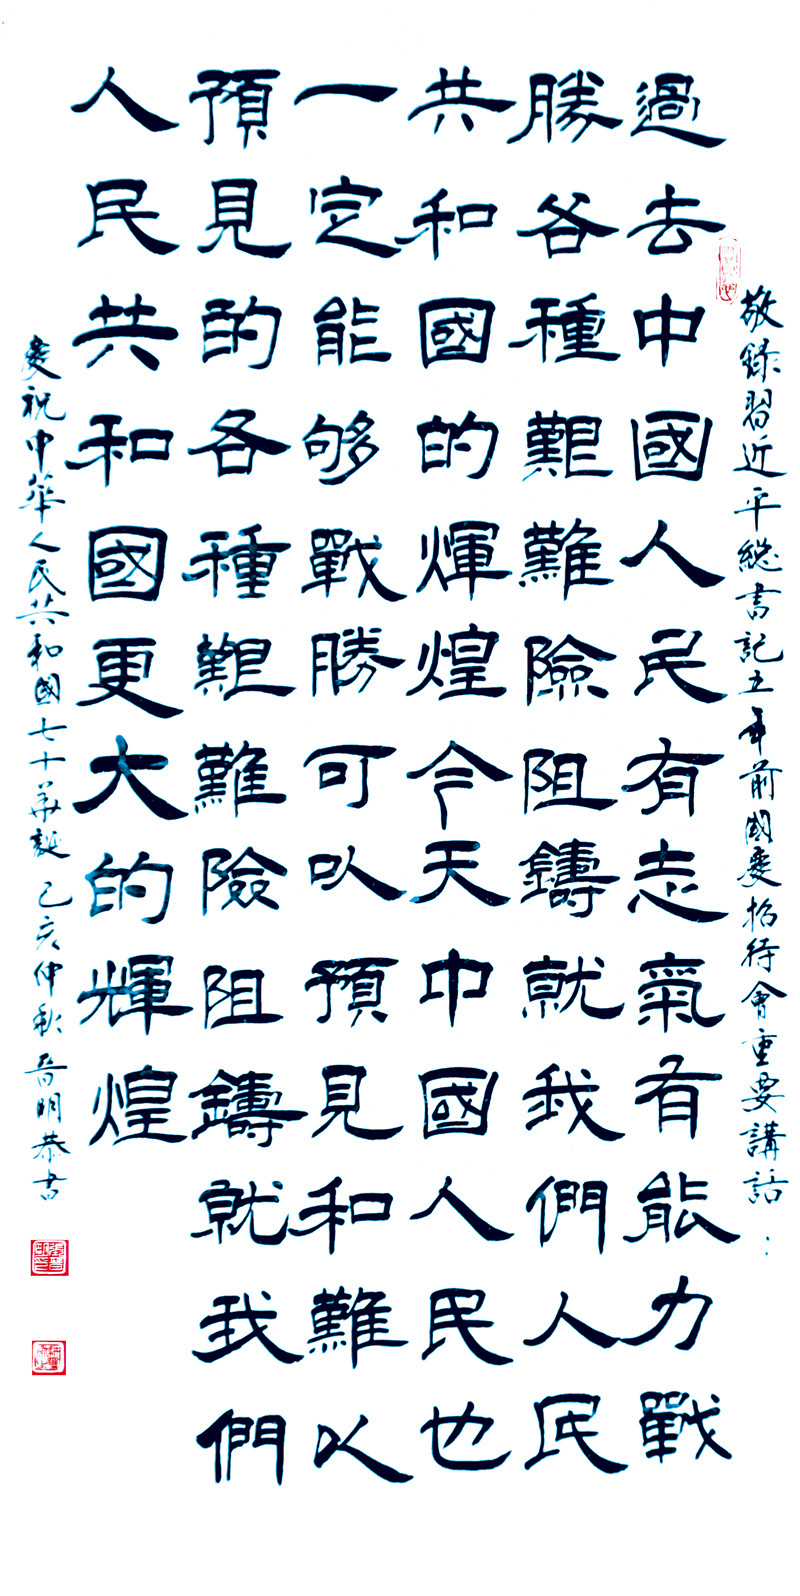 敬録習近平総書記五年前國慶招待會重要講話：
過去中國人民有志氣有能力戰
勝各種艱難險阻鑄就我們人民
共和國的煇煌今天中國人民也
一定能够戰勝可以預見和難以
預見的各種艱難險阻鑄就我們
人民共和國更大的輝煌
慶祝中華人民共和國七十華誕 己亥仲秋 晉明恭書